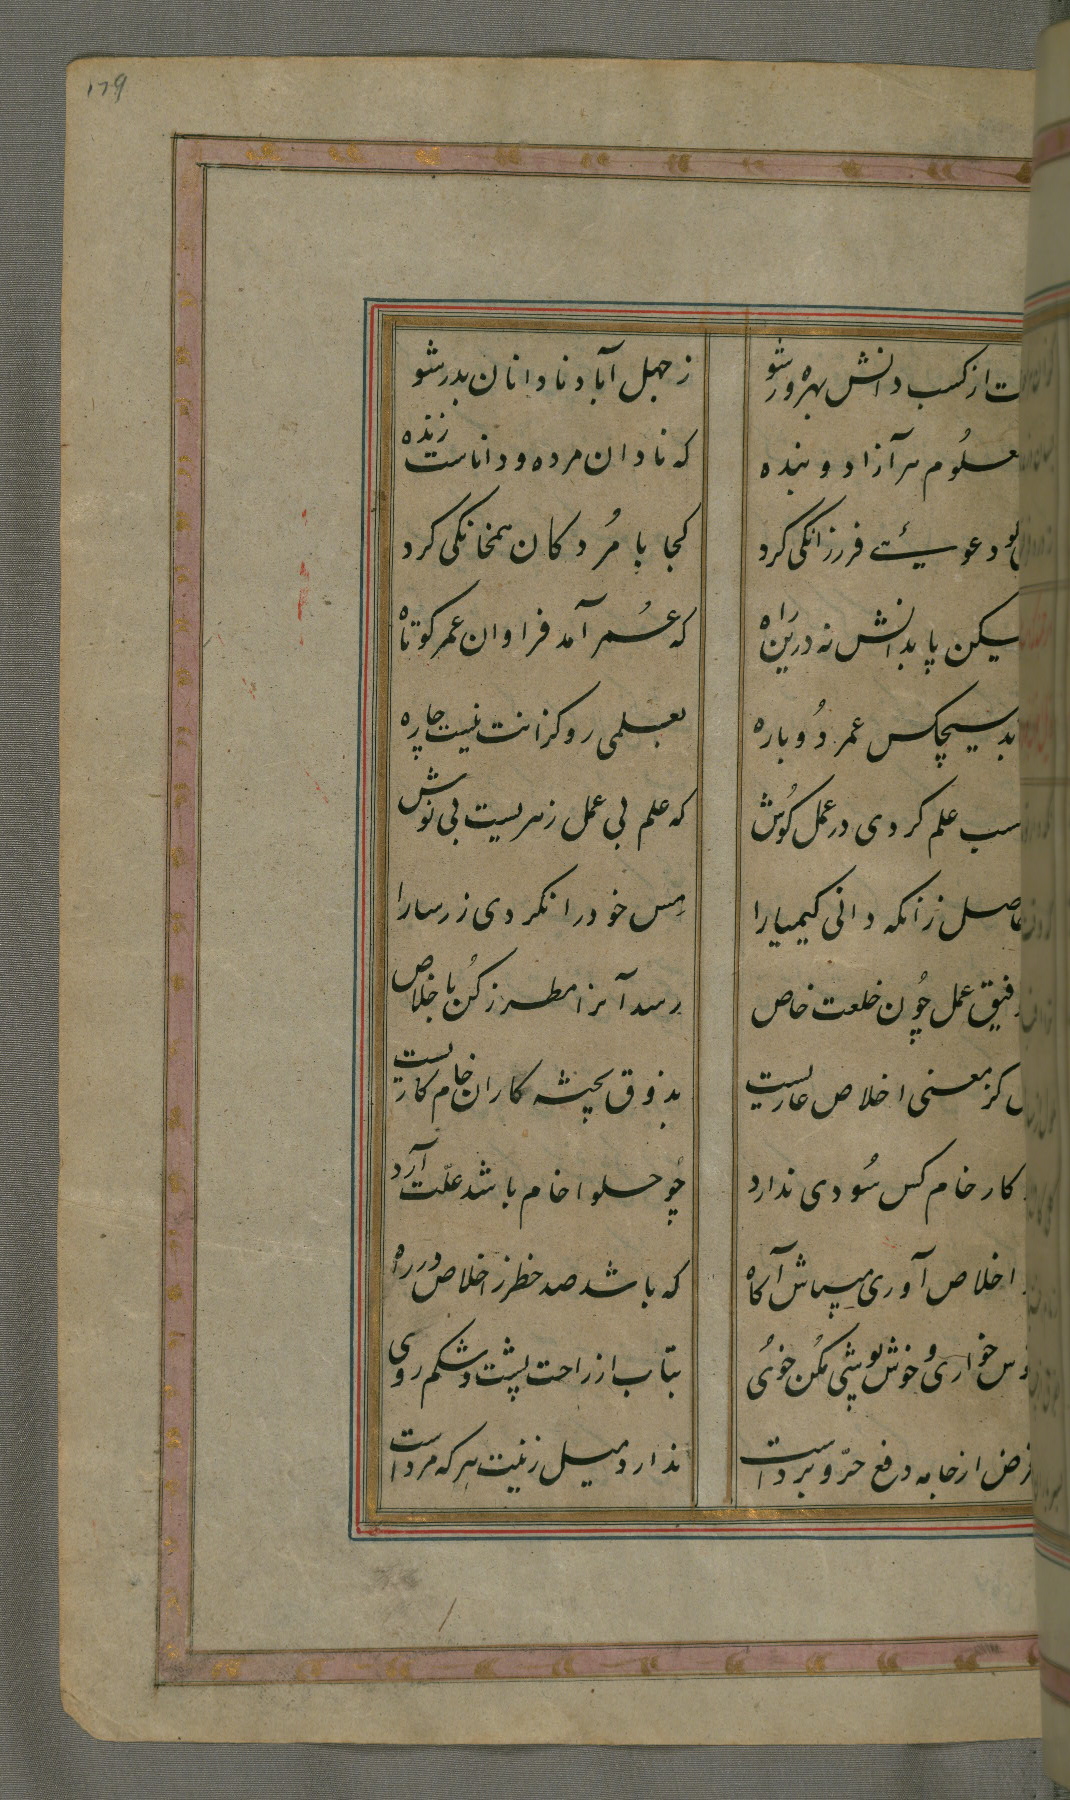 179
از کسب دانش بهره ور شو ز جهل آباد نادانان بدر شو
معلُوم هر آزاد و بنده که نادان مرده و داناست زنده
دعویئے فرزانگی کرد کجا با مُردکان همخانگی کرد
لیکن پا بدانش نه درین راه که عُسر آمد فراوان عمر کوتاه
هیچکس عمر دُوباره بعلمی رو کزانت نیست چاره
کسب علم کردی در عمل کُوش که علم بی عمل زهریست بی نوش
حاصل زانکه دانی کیمیا را مِس خود را نکردی زر سارا
توفیق عمل چُون خلعت خاص رسد آنرا مطرز کُن باخلاص
کز معنی اخلاص عاریست بذوق پخته کاران خام کاریست
کار خام کس سُودی ندارد چُو حلوا خام باشد علّت آرد
اخلاص آوری میباش آگاه که باشد صد خطر ز اخلاص در راه
خواری و خوش پوشی مکُن خوُی بتاب از راحت پشت و شکم روی
غرض از جامه دفع حرّ و برد است ندارد میل زینت هر که مرد است